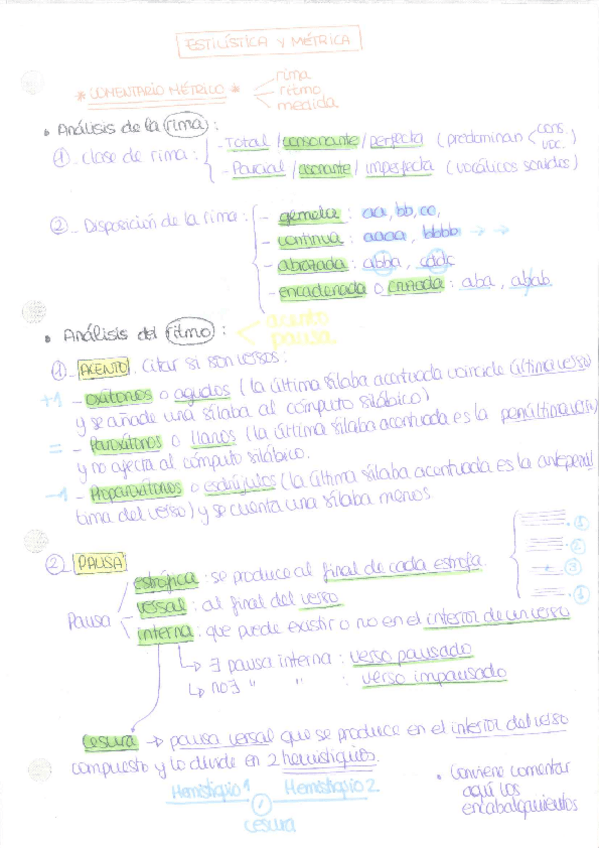 ESTILÍSTICA Y MÉTRICA
* COMENTARIO MÉTRICO * rima
ritmo
medida
• Análisis de la rima:
① Clase de rima: - Total / consonante / perfecta (predominan cons. voc.)
- Parcial / asonante / imperfecta (vocálicos sonidos)
② Disposición de la rima: - gemela: aa, bb, cc,
- continua: aaaa, bbbb → →
- abrazada: abba, cddc
- encadenada o cruzada: aba, abab.
• Análisis del ritmo: acento
pausa
① ACENTO. Citar si son versos:
+1 - oxítonos o agudos (la última sílaba acentuada coincide última verso
y se añade una sílaba al cómputo silábico)
= - Paroxítonos o llanos (la última sílaba acentuada es la penúltima
y no afecta al cómputo silábico.
-1 - Proparoxítonos o esdrújulos (la última sílaba acentuada es la antepenúl
tima del verso) y se cuenta una sílaba menos.
② PAUSA
Pausa estrófica: se produce al final de cada estrofa.
versal: al final del verso
interna: que puede existir o no en el interior de un verso
↳ ∃ pausa interna: verso pausado
↳ no ∃ " " : verso impausado
① 
② 
③ 
Cesura → pausa versal que se produce en el interior del verso
compuesto y lo divide en 2 hemistiquios.
Hemistiquio 1 Hemistiquio 2
cesura
• Conviene comentar
aquí los
encabalgamientos